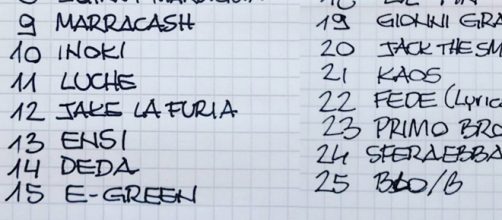 9 MARRACASH
10 INOKI
11 LUCHE
12 JAKE LA FURIA
13 ENSI
14 DEDA
15 E-GREEN
19 GIONNI GRA
20 JACK THE SM
21 KAOS
22 FEDE (Lyric
23 PRIMO BRO
24 SFERAEBBA
25 /B